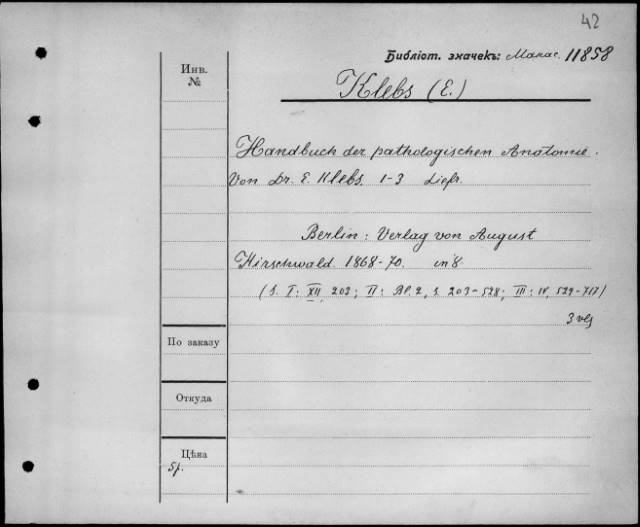 42
Библіот. значекъ: Манас. 11858
Инв.
№
Klebs (E.)
Handbuch der pathologischen Anatomie.
Von Dr. E. Klebs. 1-3 Liefr.
Berlin: Verlag von August
Hirschwald. 1868-70. in 8.
(S. I: XII, 202; II: Bl. 2, S. 203-528; III: IV, 529-717)
3 vls
По заказу
Откуда
Цѣна
5р.